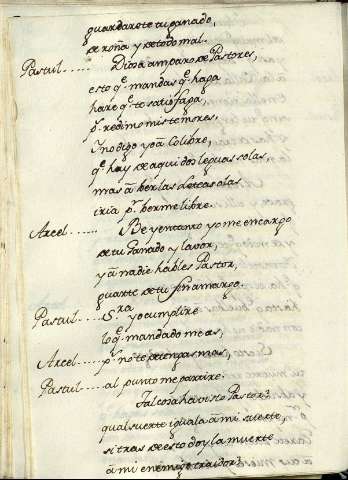 guardarete tu ganado,
de roña y de todo mal.
Pastul...... Diosa amparo de Pastores,
esto q.e mandas q.e haga
hare q.e te satisfaga,
p.r redimo mis temores,
I no digo yo a Colibre,
q.e hay de aqui dos leguas solas,
mas a ber las olas
iria p.r berme libre.
Arcel....... Be y entanto yo me encargo
de tu Ganado y lavor,
y a nadie hables Pastor,
guarte de tu fin amargo.
Pastul...... S.ra yo cumplire
lo q.e mandado me as,
Arcel....... p.s no te detengas mas,
Pastul...... al punto me partire.
Tal cosa ha visto Pastor?
qual suerte iguala a mi suerte,
si tras de esto doy la muerte
a mi enemigo traidor?